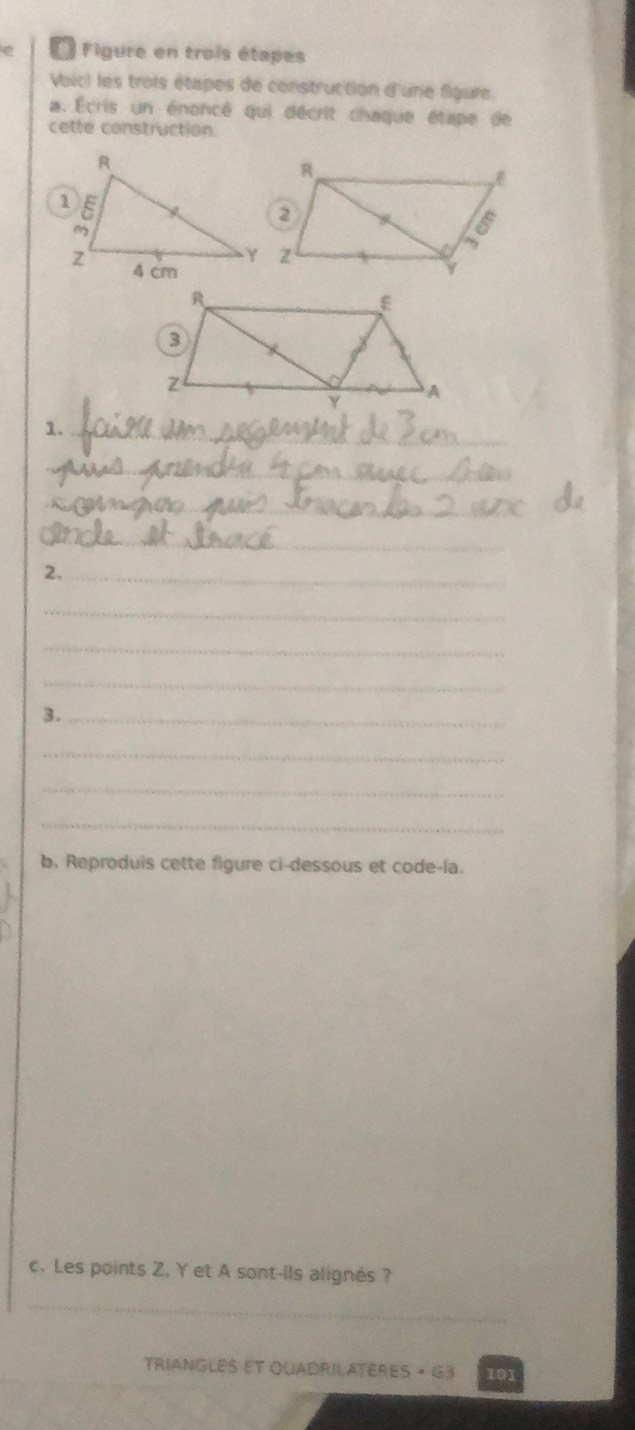 Figure en trois étapes
Voici les trois étapes de construction d'une figure.
a. Écris un énoncé qui décrit chaque étape de
cette construction.
R
1
3 cm
Z
4 cm
Y
R
E
2
3 cm
Z
Y
R
E
3
Z
Y
A
1. faire um segement de 3 cm
puis prendre 4 cm avec
puis tracer les 2 arc de
et tracé
2.
3.
b. Reproduis cette figure ci-dessous et code-la.
c. Les points Z, Y et A sont-ils alignés ?
TRIANGLES ET QUADRILATÈRES • G3 101